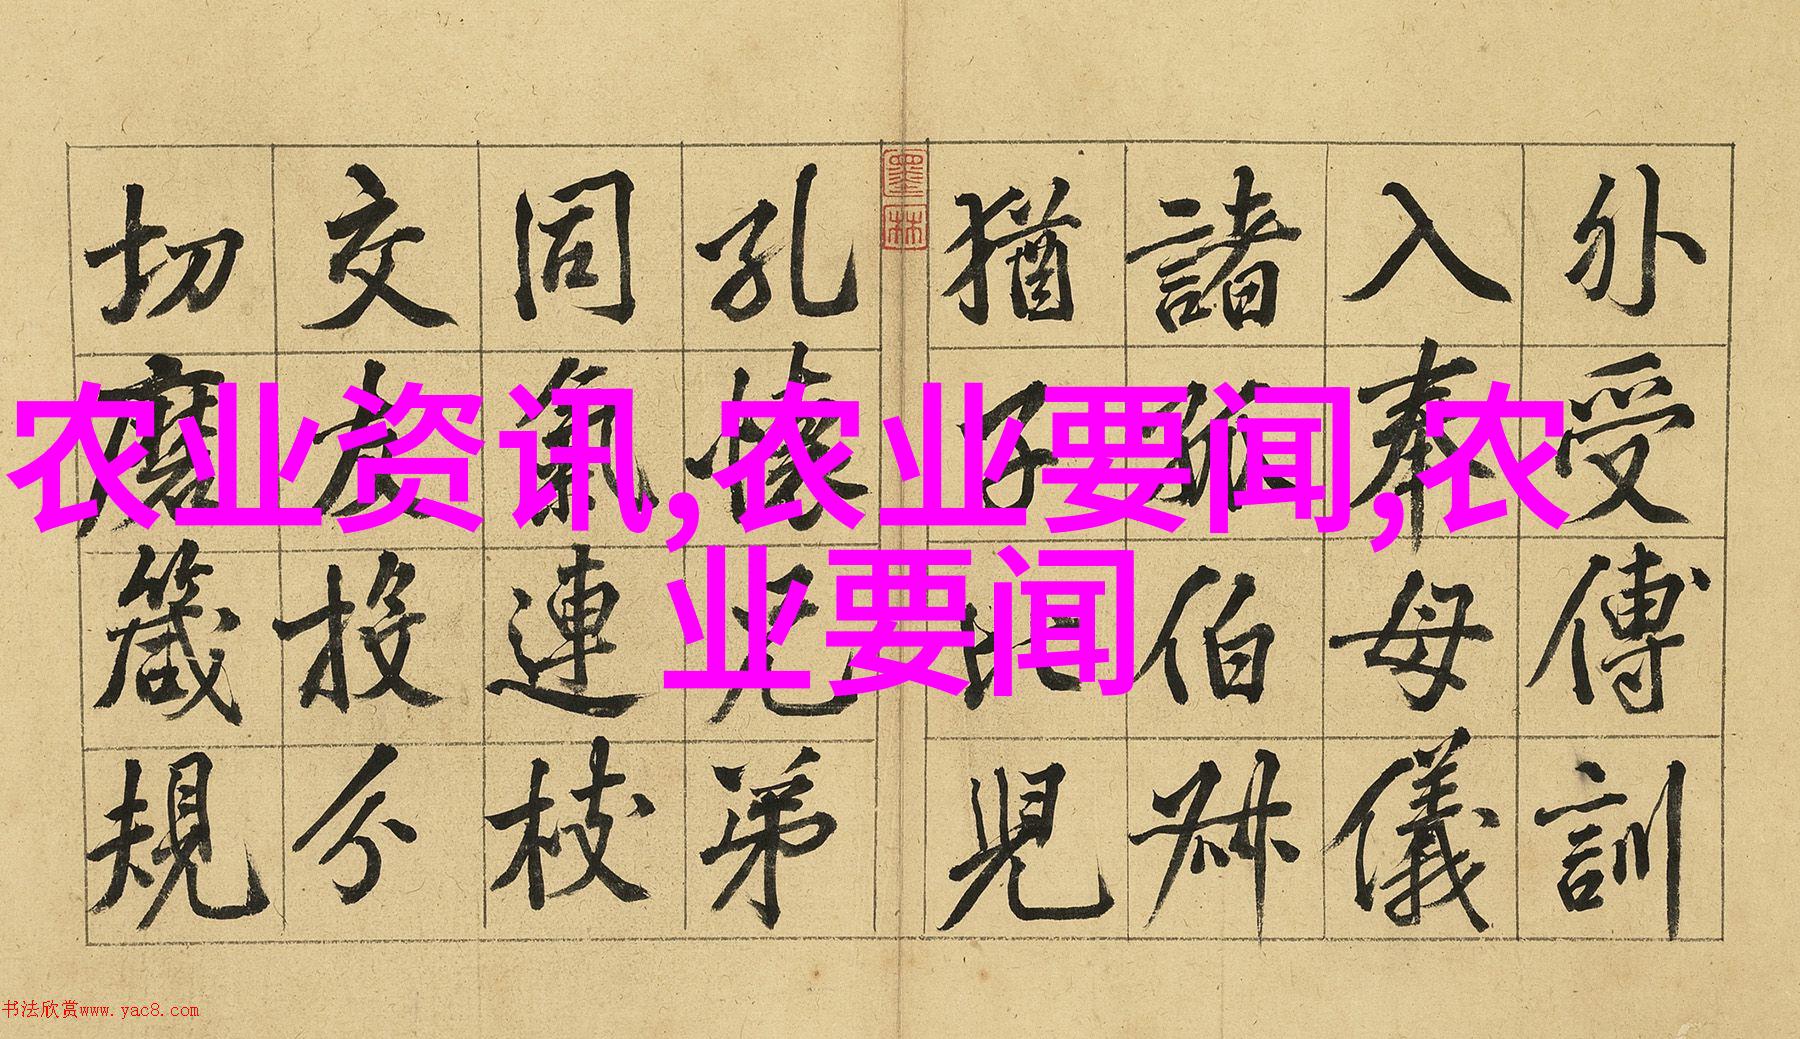 外受傅訓
入奉母儀
諸姑伯叔
猶子比兒
墨林
孔懷兄弟
同氣連枝
交友投分
切磨箴規
农业资讯,农业要闻,农
业要闻
书法欣赏www.yac8.com